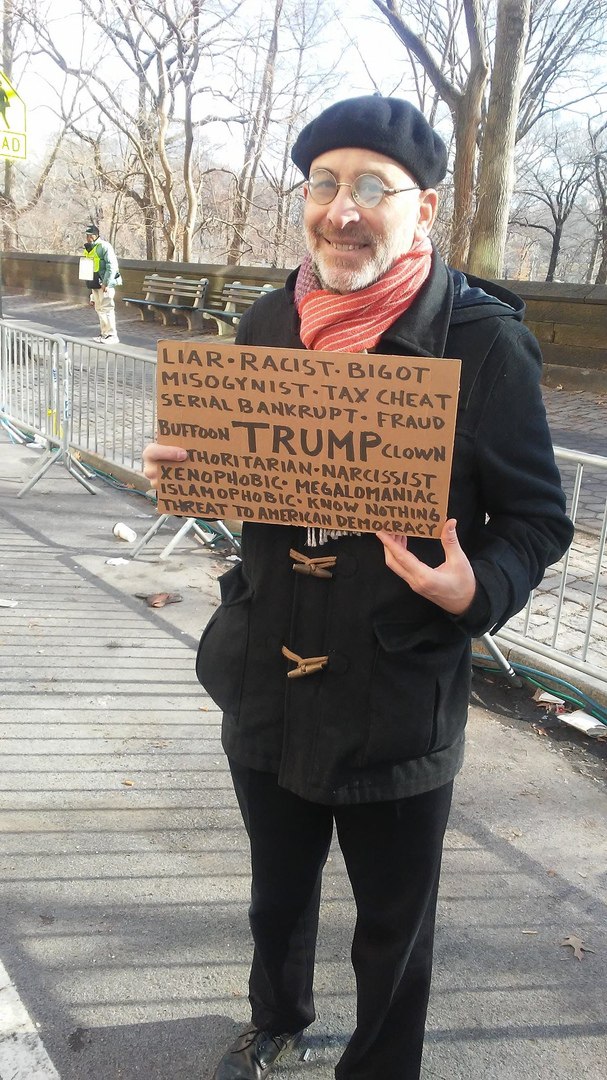 AD
LIAR • RACIST • BIGOT
MISOGYNIST • TAX CHEAT
SERIAL BANKRUPT • FRAUD
BUFFOON TRUMP CLOWN
THORITARIAN • NARCISSIST
XENOPHOBIC • MEGALOMANIAC
ISLAMOPHOBIC • KNOW NOTHING
THREAT TO AMERICAN DEMOCRACY